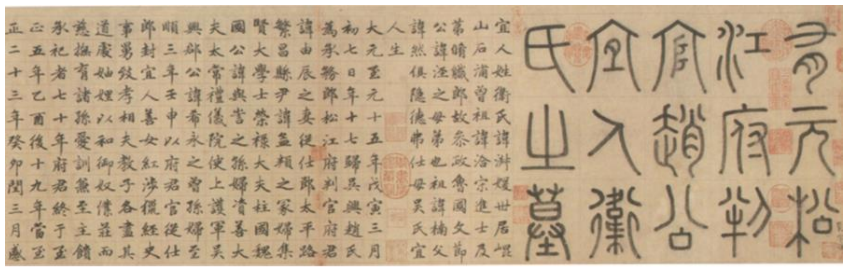 有元松
江府判
官趙公
宜人衛
氏之墓
宜人姓衛氏諱淑媛世居崐
山石浦曾祖諱洽宗進士及
第郎故參政魯國文節
公諱涇之母弟也祖諱楠父
諱然俱隱德弗仕母吳氏宜
人生
大元至元十五年戊寅三月
初七日年十七歸吳興趙氏
為承務郎松江府判官府君
諱由辰之妻從仕郎太平路
繁昌縣尹諱孟頖之冢婦集
賢大學士榮祿大夫柱國魏
國公諱與訔之孫婦資善大
夫太常禮儀院使上護軍吳
興郡公諱希永之曾孫婦至
順三年壬申以府君官從仕
郎封宜人善女紅涉獵經史
事舅姑孝相夫教子各盡其
道處妯娌以和御奴僕莊而
慈撫育諸孫愛訓兼至主饋
承祀者七十年府君終于至
正五年乙酉後十九年當至
正二十三年癸卯閏三月感